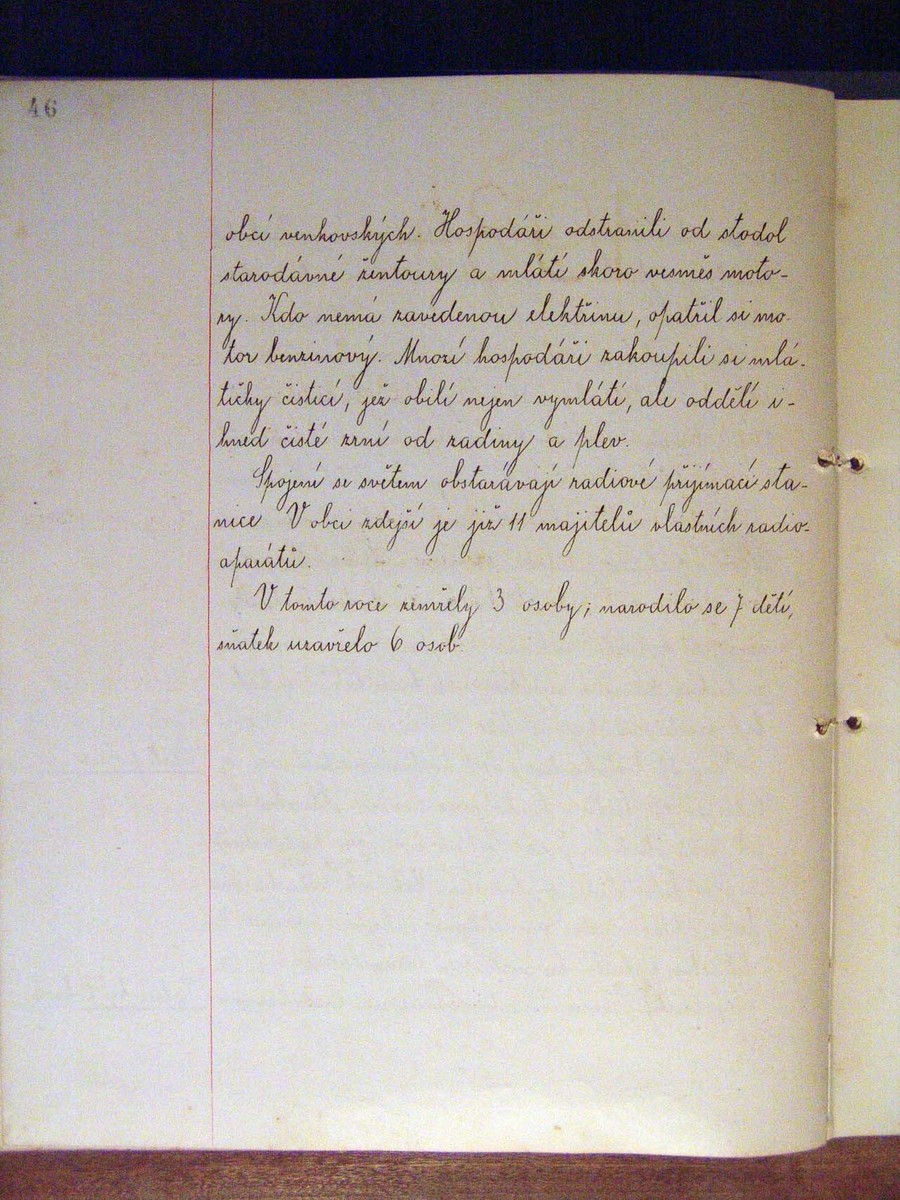 46
obcí venkovských. Hospodáři odstranili od stodol
starodávné žentoury a mlátí skoro vesměs moto-
ry. Kdo nemá zavedenou elektřinu, opatřil si mo-
tor benzinový. Mnozí hospodáři zakoupili si mlá-
tičky čistící, jež obilí nejen vymlátí, ale oddělí i-
hned čisté zrní od zadiny a plev.
Spojení se světem obstarávají radiové přijímací sta-
nice V obci zdejší je již 11 majitelů vlastních radio-
aparátů.
V tomto roce zemřely 3 osoby; narodilo se 7 dětí,
sňatek uzavřelo 6 osob.